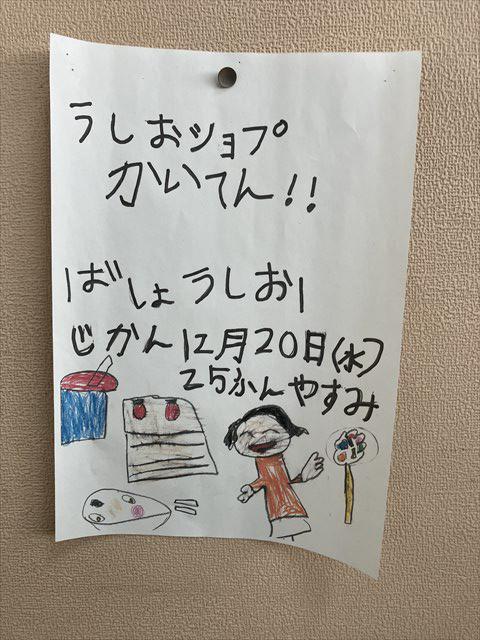 うしおショプ
かいてん!!
ばしょ うしお1
じかん 12月20日(水)
25ふんやすみ